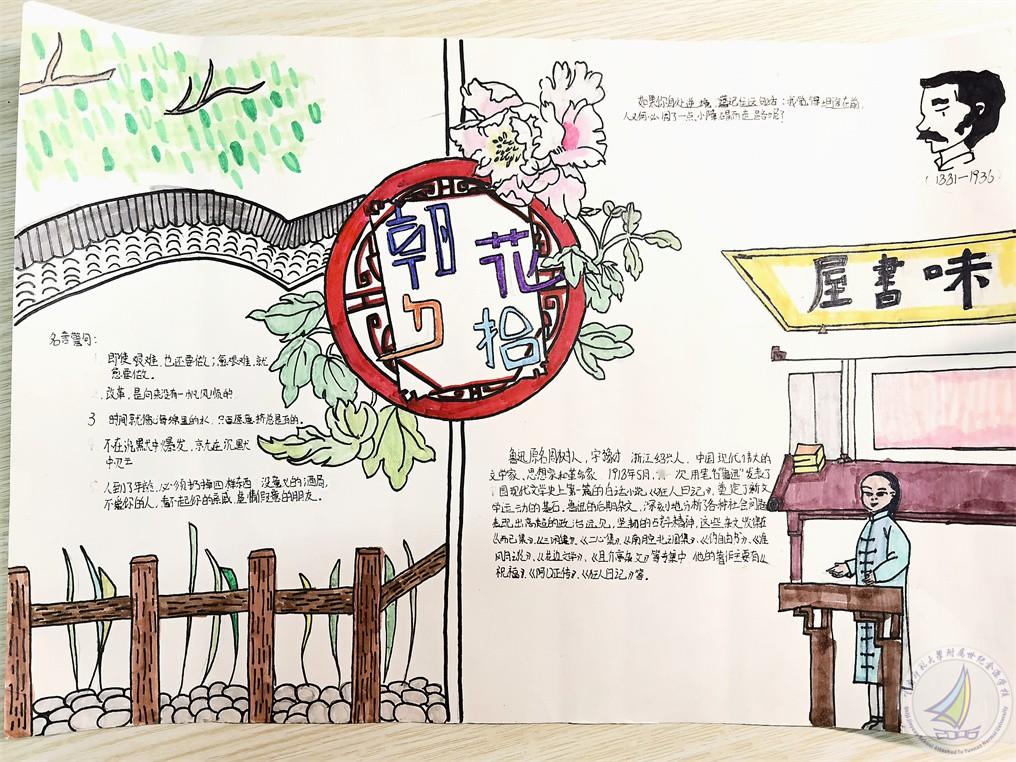 朝花
夕拾
如果你身处逆境，
人又何必因了一点小障碍而走
(1881—1936)
屋書味
名言警句：
1 即使艰难，也还要做；愈艰难，就
愈要做。
2、改革，是向来没有一帆风顺的
3 时间就像海绵里的水，只要愿意挤总是有的。
4 不在沉默中爆发，就在沉默
中灭亡
5 人到了年龄，必须扔掉四样东西 没意义的酒局，
不爱你的人，看不起你的亲戚，虚情假意的朋友。
鲁迅原名周树人，字豫才 浙江绍兴人，中国现代伟大的
文学家、思想家和革命家 1918年5月，一次用笔名"鲁迅"发表了
中国现代文学史上第一篇的白话小说《狂人日记》，奠定了新文
学运动的基石，鲁迅的后期杂文，深刻地分析了各种社会问题
表现出高超的政治远见，坚韧的 精神，这些杂文收集在
《而已集》、《三闲集》、《二心集》、《南腔北调集》、《伪自由书》、《准
风月谈》、《花边文学》、《且介亭杂文》等专集中 他的著作主要有《
祝福》、《阿Q正传》、《狂人日记》等。